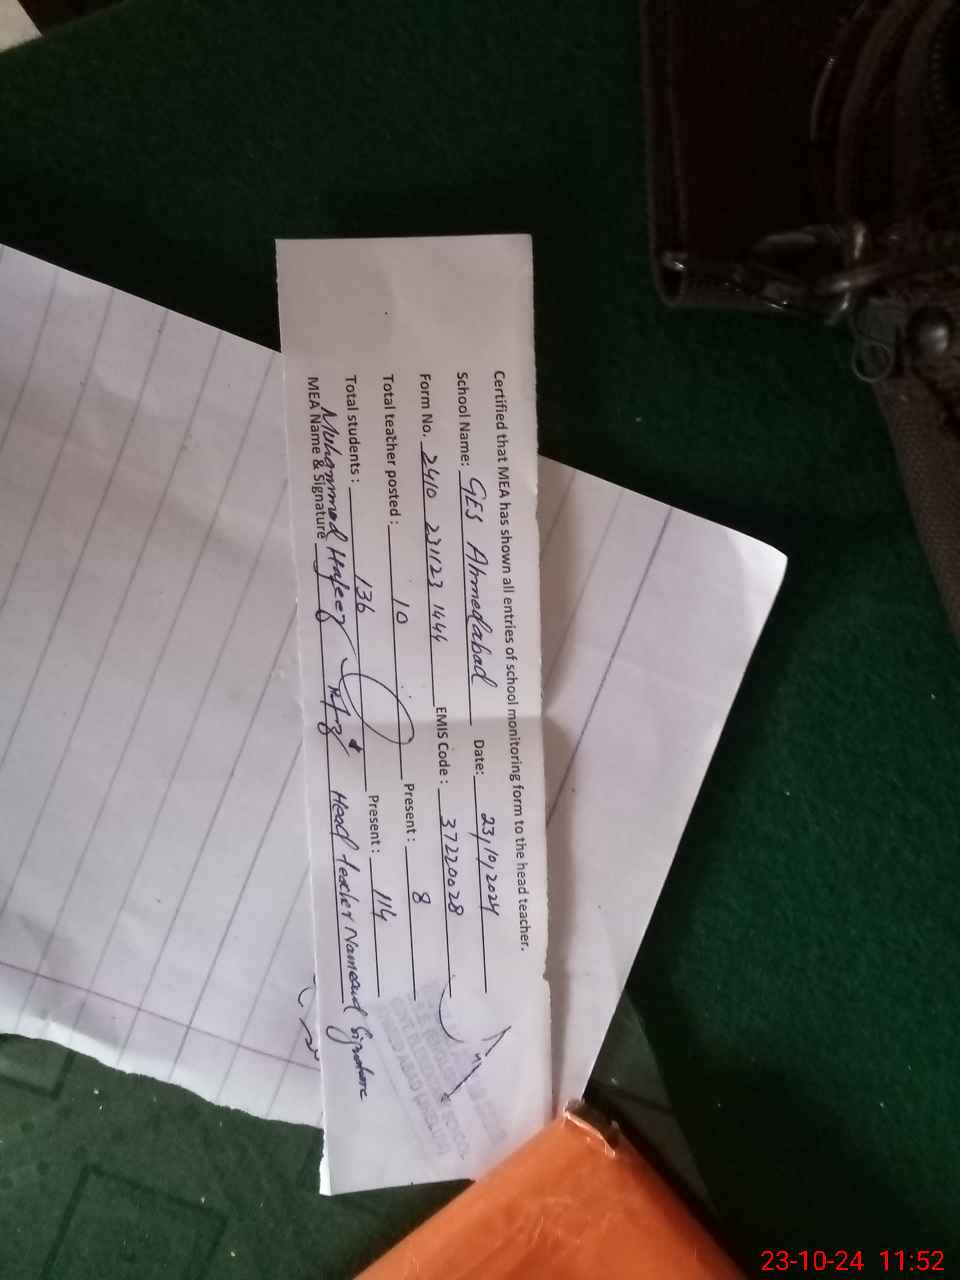 Certified that MEA has shown all entries of school monitoring form to the head teacher.
School Name: GES Ahmedabad Date: 23,10,2024
Form No. 2410 231123 1444 EMIS Code: 37220028
Total teather posted: 10 Present: 8
Total students: 136 Present: 114
MEA Name & Signature Muhammad Hafeez Head teacher Name and Signature
23-10-24 11:52